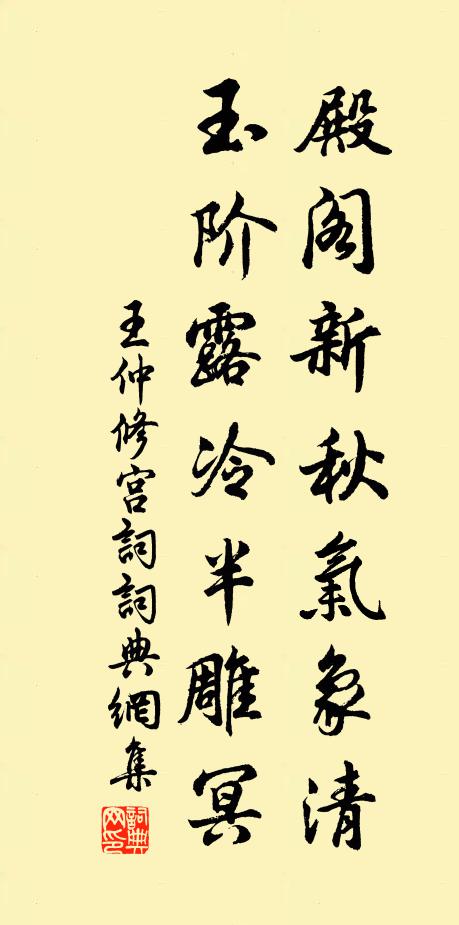 殿阁新秋氣象清
玉阶露冷半雕冥
王仲修宫詞詞典網集
詞典網印